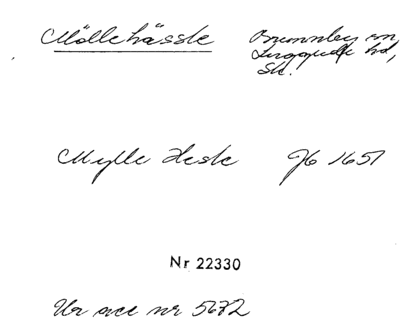 Möllehässle
Brunnby sn,
Luggude hd,
Sk.
Mylle Hesle Jb 1651
Nr 22330
Ur acc nr 5672